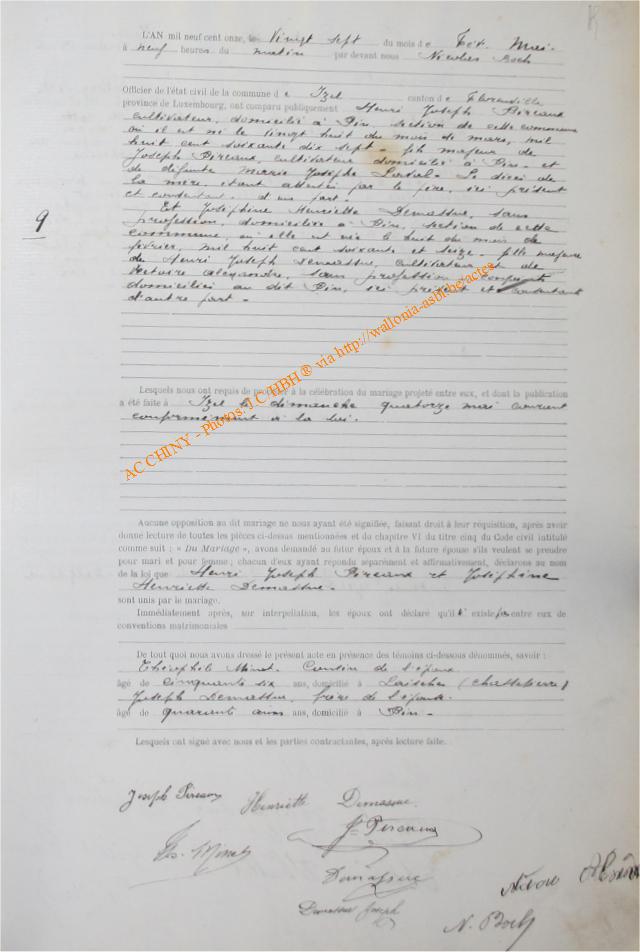 L'AN mil neuf cent onze, le Vingt sept du mois de Mai
à neuf heures du matin par devant nous Nicolas Boch
Officier de l'état civil de la commune de Izel canton de Florenville
province de Luxembourg, ont comparu publiquement Henri Joseph Pireaux
cultivateur, domicilié à Pin, section de cette commune
où il est né le vingt huit du mois de mars, mil
huit cent soixante dix sept - fils majeur de
Joseph Pireaux, cultivateur domicilié à Pin - et
de défunte Marie Josèphe - Le décès de
la mère, étant attesté par le père, ici présent
et consentant - d'une part -
Et Joséphine Henriette Demasure, sans
profession, domiciliée à Pin, section de cette
commune, où elle est née le huit du mois de
février, mil huit cent soixante et seize - fille majeure
de Henri Joseph Demasure, cultivateur et de
Victoire Alexandre, sans profession, conjoints
domiciliés au dit Pin, ici présents et consentants
d'autre part -
9
Lesquels nous ont requis de procéder à la célébration du mariage projeté entre eux, et dont la publication
a été faite à Izel le dimanche quatorze mai courant
conformément à la loi.
Aucune opposition au dit mariage ne nous ayant été signifiée, faisant droit à leur réquisition, après avoir
donné lecture de toutes les pièces ci-dessus mentionnées et du chapitre VI du titre cinq du Code civil intitulé
comme suit : « Du Mariage », avons demandé au futur époux et à la future épouse s'ils veulent se prendre
pour mari et pour femme ; chacun d'eux ayant repondu séparément et affirmativement, déclarons au nom
de la loi que Henri Joseph Pireaux et Joséphine
Henriette Demasure -
sont unis par le mariage.
Immédiatement après, sur interpellation, les époux ont déclaré qu'il n'existe pas entre eux de
conventions matrimoniales
De tout quoi nous avons dressé le présent acte en présence des témoins ci-dessous dénommés, savoir :
Théophile Minet - Cousin de l'époux
âgé de cinquante six ans, domicilié à Laiche (Chassepierre)
Joseph Demasure, frère de l'épouse -
âgé de quarante ans, domicilié à Pin -
Lesquels ont signé avec nous et les parties contractantes, après lecture faite.
Joseph Pireaux Henriette Demasure
J. Pireaux
Th. Minet
Demasure
Demasure Joseph
N. Boch
AC CHINY - Photos: J.C HBH ® via http://wallonia-asbl.be/actes